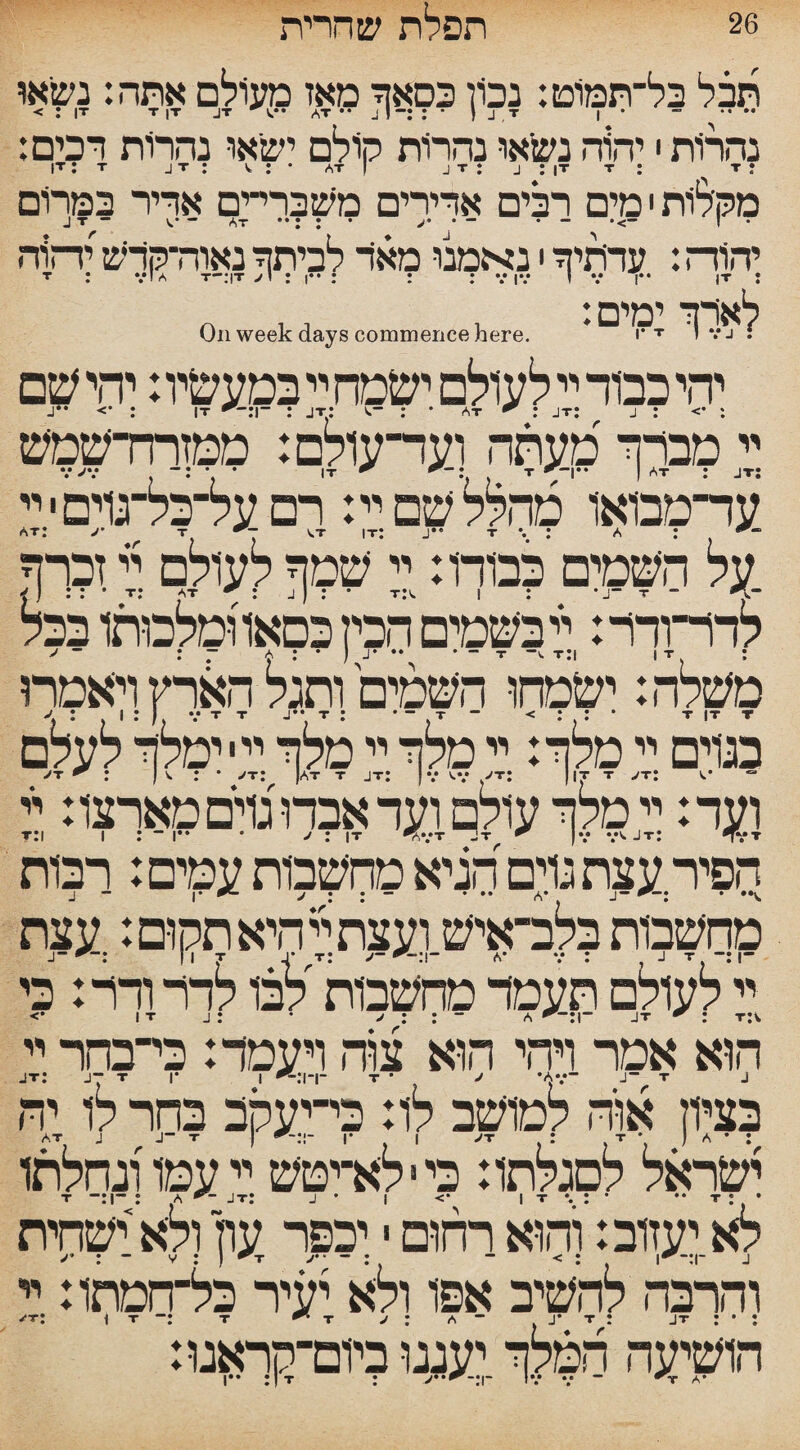 תפלת שחרית 26
תֵּבֵל בַּל־תִּמּוֹט׃ נָכוֹן כִּסְאֲךָ מֵאָז מֵעוֹלָם אָתָּה׃ נָשְׂאוּ
נְהָרוֹת ׀ יְהֹוָה נָשְׂאוּ נְהָרוֹת קוֹלָם יִשְׂאוּ נְהָרוֹת דָּכְיָם׃
מִקֹּלוֹת ׀ מַיִם רַבִּים אַדִּירִים מִשְׁבְּרֵי־יָם אַדִּיר בַּמָּרוֹם
יְהֹוָה׃ עֵדֹתֶיךָ ׀ נֶאֶמְנוּ מְאֹד לְבֵיתְךָ נַאֲוָה־קֹדֶשׁ יְהֹוָה
לְאֹרֶךְ יָמִים׃
On week days commence here.
יְהִי כְבוֹד יְיָ לְעוֹלָם יִשְׂמַח יְיָ בְּמַעֲשָׂיו׃ יְהִי שֵׁם
יְיָ מְבֹרָךְ מֵעַתָּה וְעַד־עוֹלָם׃ מִמִּזְרַח־שֶׁמֶשׁ
עַד־מְבוֹאוֹ מְהֻלָּל שֵׁם יְיָ׃ רָם עַל־כָּל־גּוֹיִם ׀ יְיָ
עַל הַשָּׁמַיִם כְּבוֹדוֹ׃ יְיָ שִׁמְךָ לְעוֹלָם יְיָ זִכְרְךָ
לְדֹר־וָדֹר׃ יְיָ בַּשָּׁמַיִם הֵכִין כִּסְאוֹ וּמַלְכוּתוֹ בַּכֹּל
מָשָׁלָה׃ יִשְׂמְחוּ הַשָּׁמַיִם וְתָגֵל הָאָרֶץ וְיֹאמְרוּ
בַגּוֹיִם יְיָ מָלָךְ׃ יְיָ מֶלֶךְ יְיָ מָלָךְ יְיָ ׀ יִמְלֹךְ לְעֹלָם
וָעֶד׃ יְיָ מֶלֶךְ עוֹלָם וָעֶד אָבְדוּ גוֹיִם מֵאַרְצוֹ׃ יְיָ
הֵפִיר עֲצַת גּוֹיִם הֵנִיא מַחְשְׁבוֹת עַמִּים׃ רַבּוֹת
מַחֲשָׁבוֹת בְּלֶב־אִישׁ וַעֲצַת יְיָ הִיא תָקוּם׃ עֲצַת
יְיָ לְעוֹלָם תַּעֲמֹד מַחְשְׁבוֹת לִבּוֹ לְדֹר וָדֹר׃ כִּי
הוּא אָמַר וַיֶּהִי הוּא צִוָּה וַיַּעֲמֹד׃ כִּי־בָחַר יְיָ
בְּצִיּוֹן אִוָּהּ לְמוֹשָׁב לוֹ׃ כִּי־יַעֲקֹב בָּחַר לוֹ יָהּ
יִשְׂרָאֵל לִסְגֻלָּתוֹ׃ כִּי ׀ לֹא־יִטֹּשׁ יְיָ עַמּוֹ וְנַחֲלָתוֹ
לֹא יַעֲזוֹב׃ וְהוּא רַחוּם ׀ יְכַפֵּר עָוֹן וְלֹא יַשְׁחִית
וְהִרְבָּה לְהָשִׁיב אַפּוֹ וְלֹא יָעִיר כָּל־חֲמָתוֹ׃ יְיָ
הוֹשִׁיעָה הַמֶּלֶךְ יַעֲנֵנוּ בְיוֹם־קָרְאֵנוּ׃